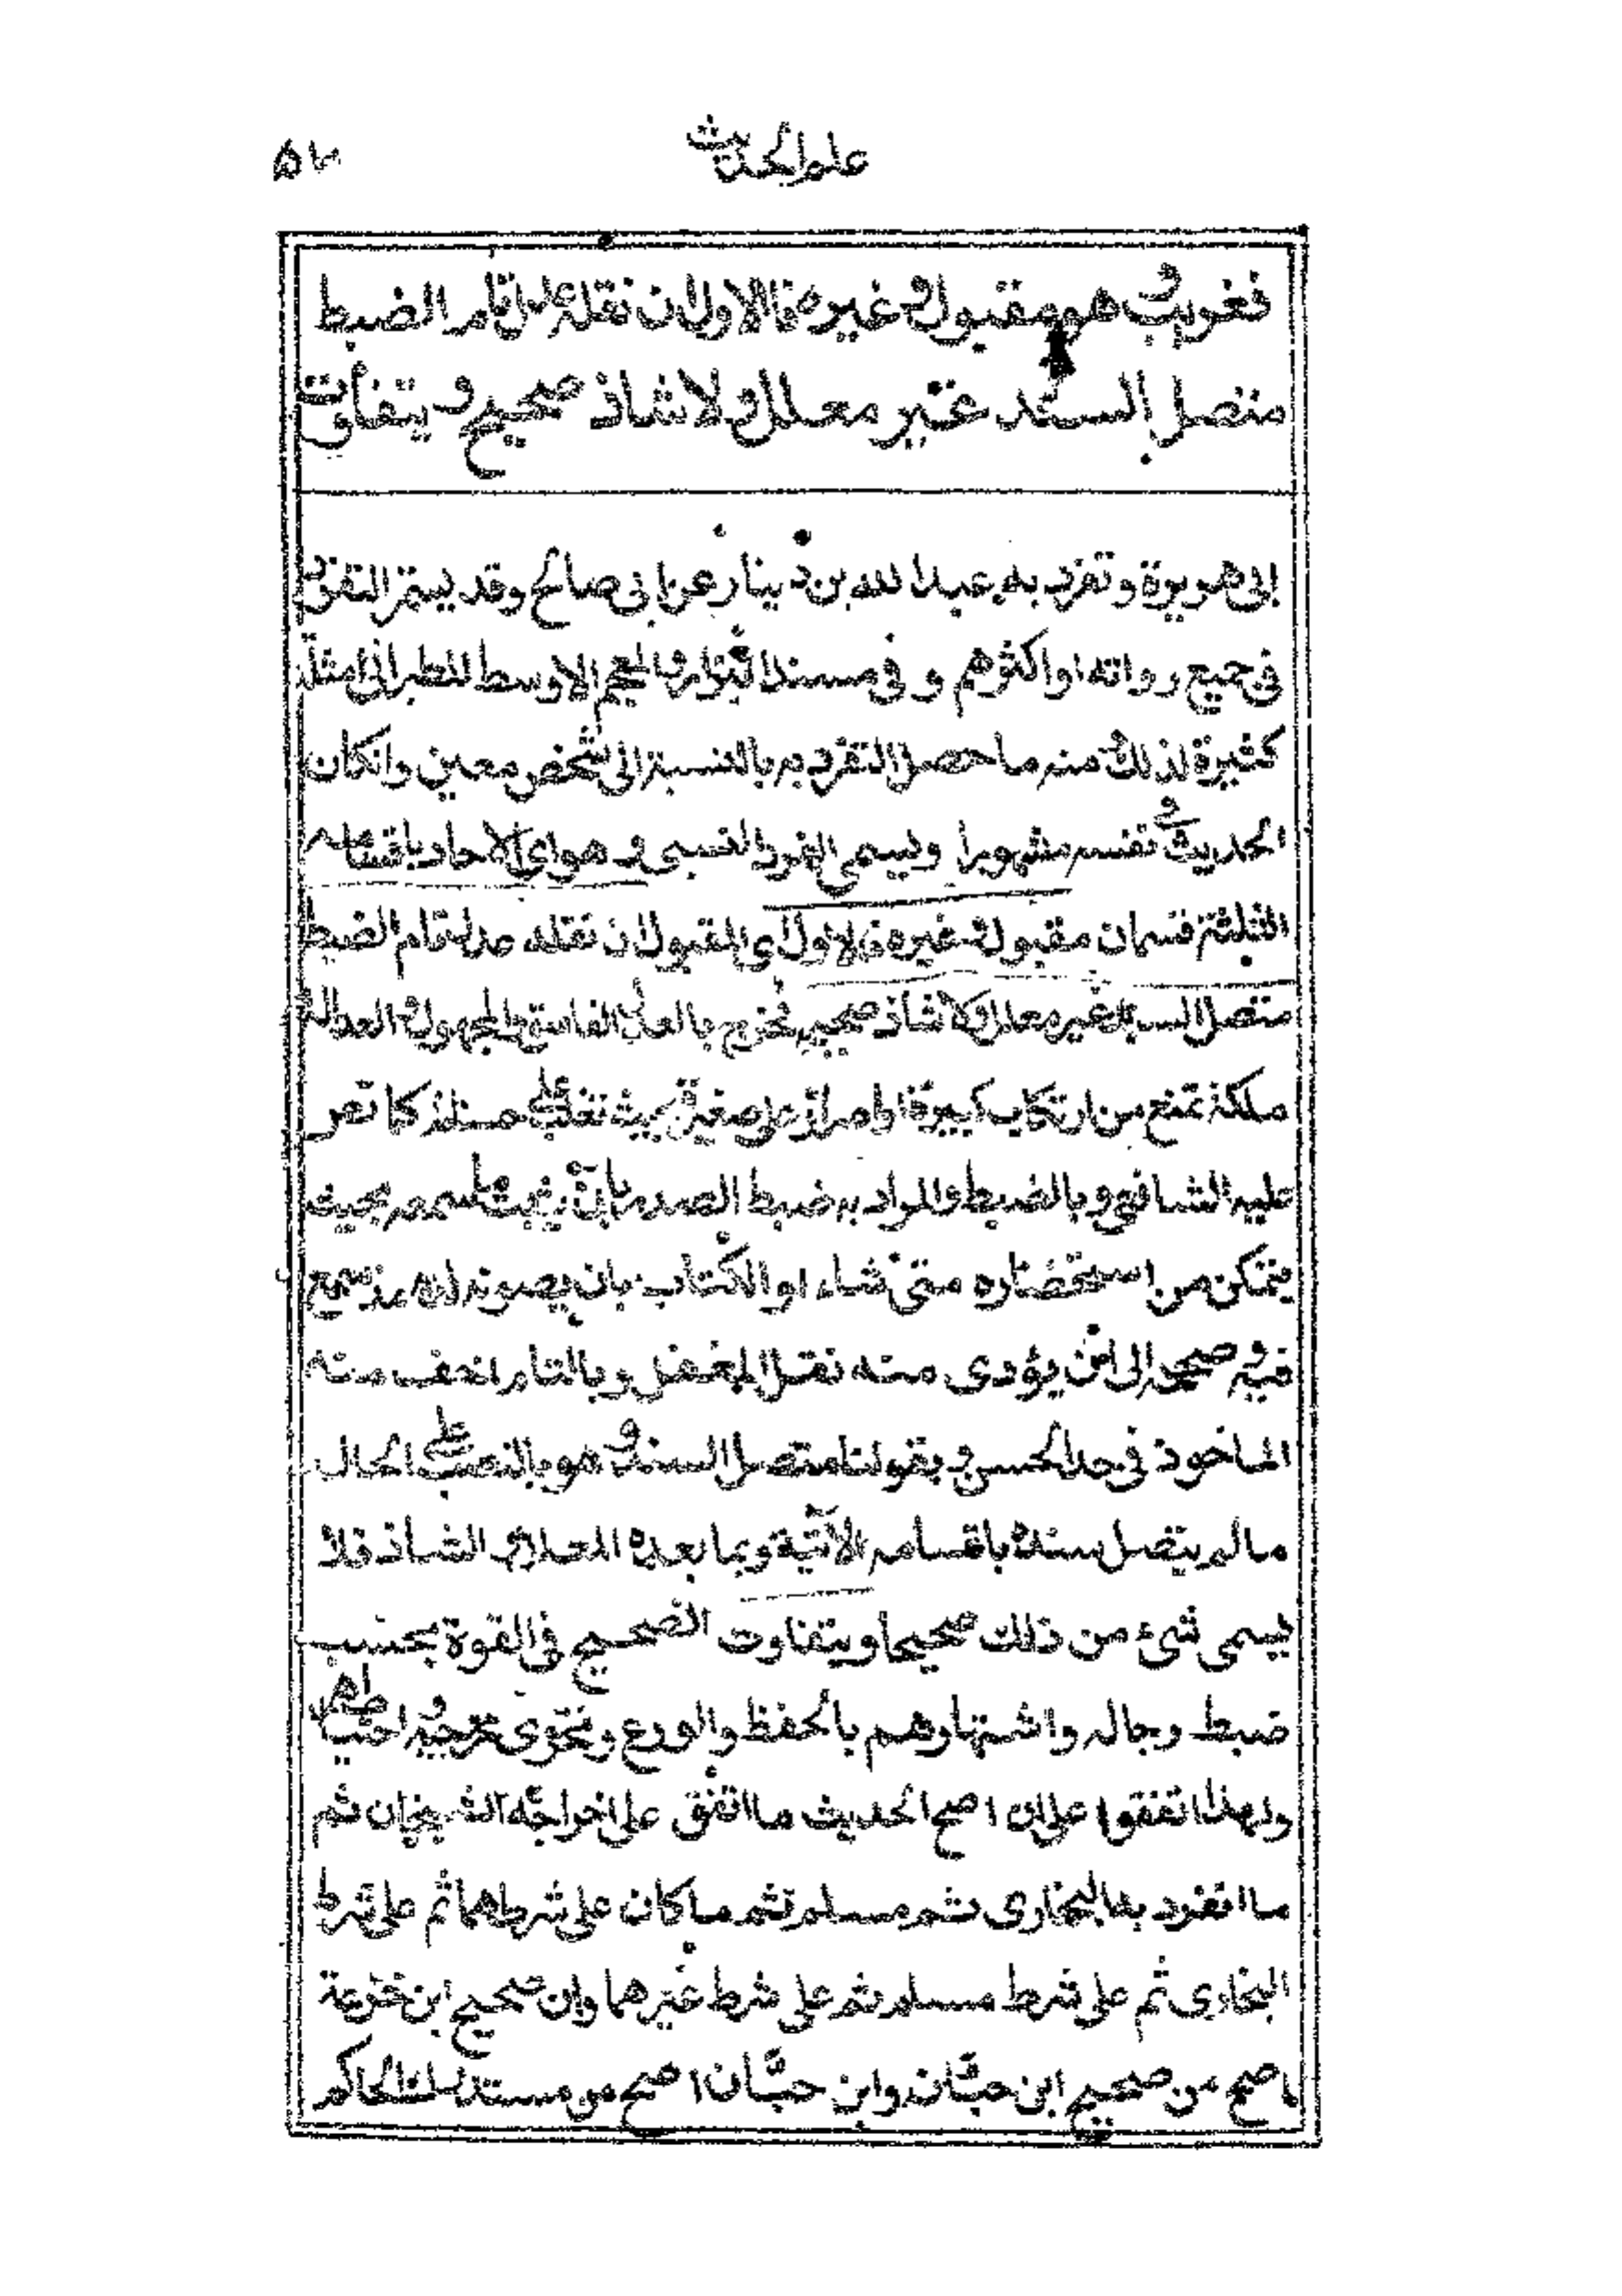 علم الحديث ٥٢
فغريب وهو مقبول وغيره فالاول ان نقله عدل تام الضبط
متصل السند غير معلل ولا شاذ صحيح ويتفاوت
ابى هريرة وتفرد به عبد الله بن دينار عن ابى صالح وقد يستمر التفرد
فى جميع رواته او اكثرهم و فى مسند البزار والمعجم الاوسط للطبرانى امثلة
كثيرة لذلك ومنه ما حصل التفرد به بالنسبة الى شخص معين وانكان
الحديث فى نفسه مشهورا ويسمى الفرد النسبى وهو اى الاحاد باقسامه
الثلثة قسمان مقبول وغيره فالاول اى المقبول ان نقله عدل تام الضبط
متصل السند غير معلل ولا شاذ صحيح فخرج بالعدل الفاسق والمجهول والعدالة
ملكة تمنع من ارتكاب كبيرة او اصرار على صغيرة بحيث تغلب على حسناته كما نص
عليه الشافعى وبالضبط والمراد به ضبط الصدر بان يثبت ما سمعه بحيث
يتمكن من استحضاره متى شاء او الكتاب بان يصونه لديه مذ سمع
فيه وصححه الى ان يؤدى منه نقل المغفل وبالتام اخف منه
الماخوذ فى حد الحسن و بقولنا متصل السند وهو بالنصب على الحال
ما لم يتصل سنده باقسامه الآتية وبما بعده المعلل والشاذ فلا
يسمى شئ من ذلك صحيحا ويتفاوت الصحيح فى القوة بحسب
ضبط رجاله واشتهارهم بالحفظ والورع وتحرى مخرجيه واحتياطهم
ولهذا اتفقوا على ان اصح الحديث ما اتفق على اخراجه الشيخان ثم
ما انفرد به البخارى ثم مسلم ثم ما كان على شرطهما ثم على شرط
البخارى ثم على شرط مسلم ثم على شرط غيرهما وان صحيح ابن خزيمة
اصح من صحيح ابن حبان وابن حبان اصح من مستدرك الحاكم